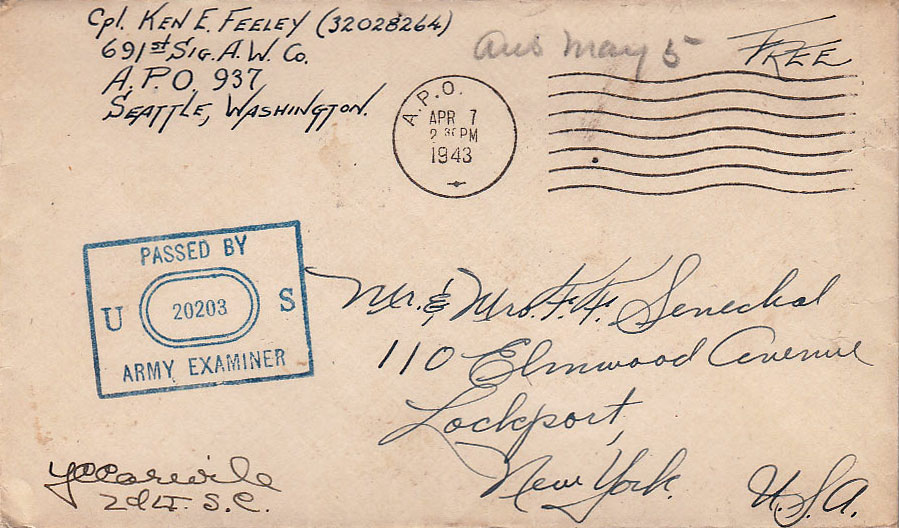 Cpl. KEN E. FEELEY (32028264)
691st SIG. A. W. Co.
A. P. O. 937
SEATTLE, WASHINGTON.
Ans May 5
FREE
A.P.O.
APR 7
2 30 PM
1943
PASSED BY
U 20203 S
ARMY EXAMINER
Mr. & Mrs. F. F. Senechal
110 Elmwood Avenue
Lockport,
New York.
U.S.A.
2d Lt. S.C.